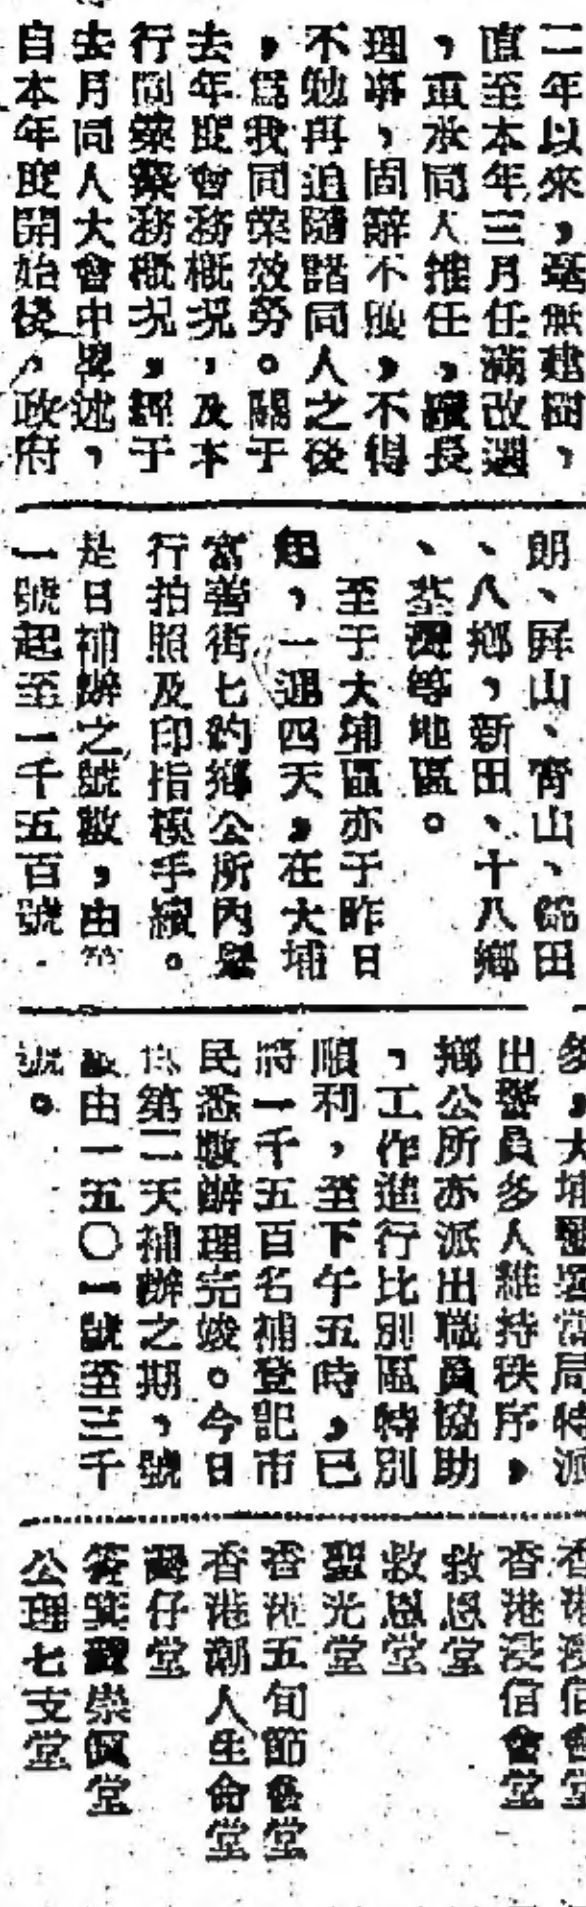 二年以來，毫無建樹，
直至本年三月任滿改選
，重承同人推任，續長
理事，固辭不獲，不得
不勉再追隨諸同人之後
，爲我同業效勞。關于
去年度會務概况，及本
行同業業務概况，經于
去月同人大會中畢述，
自本年度開始後，政府
朗、屏山、青山、錦田
、八鄉，新田、十八鄉
、荃灣等地區。
至于大埔區亦于昨日
起，一連四天，在大埔
富善街七約鄉公所內舉
行拍照及印指模手續。
是日補辦之號數，由
一號起至一千五百號．
多，大埔警署當局特派
出警員多人維持秩序，
鄉公所亦派出職員協助
，工作進行比別區特別
順利，至下午五時，已
將一千五百名補登記市
民悉數辦理完竣。今日
爲第二天補辦之期，號
數由一五〇一號至三千
號。
香港浸信會堂
香港浸信會堂
救恩堂
救恩堂
聖光堂
香港五旬節會堂
香港潮人生命堂
灣仔堂
筲箕灣崇眞堂
公理七支堂